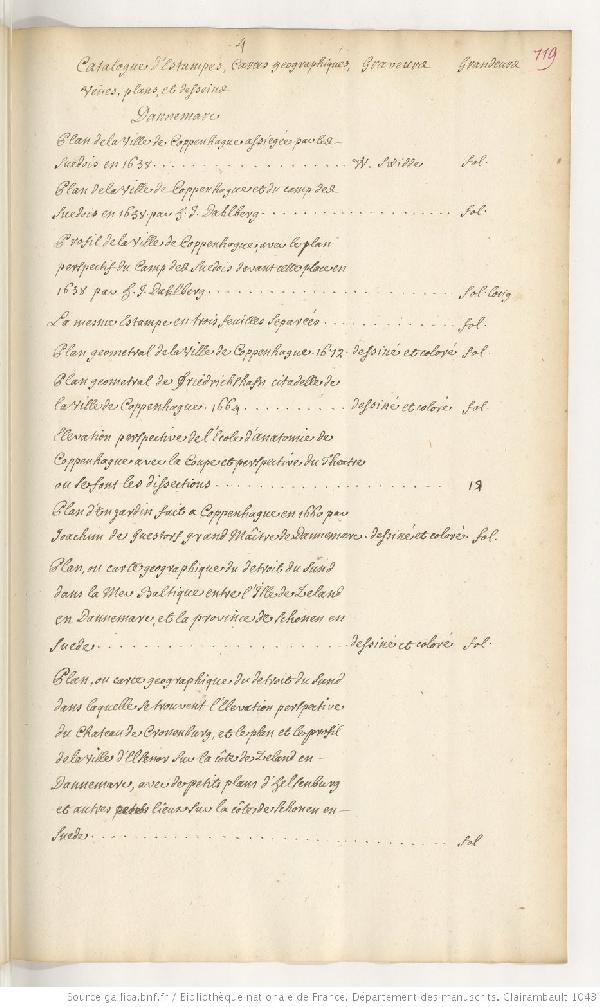 4
719
Catalogue d'Estampes, Cartes geographiques, Graveurs Grandeurs
Veues, plans, et desseins
Dannemarc
Plan de la Ville de Coppenhague assiegée par les
Suedois en 1658 W. Swidde fol.
Plan de la Ville de Coppenhague et du camp des
Suedois en 1658 par E. J. Dahlberg fol.
Profil de la Ville de Coppenhague, avec le plan
perspectif du Camp des Suedois devant cette place en
1658 par E. J. Dahlberg fol. long
La mesme Estampe en trois feuilles separées fol.
Plan geometral de la Ville de Coppenhague 1672. dessiné et coloré fol.
Plan geometral de Friedrichshafn citadelle de
la Ville de Coppenhague. 1664 dessiné et coloré fol.
Elevation perspective de l'Ecole d'anatomie de
Coppenhague avec la Coupe et perspective du Theatre
ou se font les dissections
Plan d'un jardin fait a Coppenhague en 1660 par
Joachim de grand Maître de Dannemarc. dessiné et coloré fol.
Plan, ou carte geographique du detroit du Sund
dans la Mer Baltique entre l'Isle de Zeland
en Dannemarc, et la province de Schonen en
Suede dessiné et coloré fol.
Plan, ou carte geographique du detroit du Sund
dans laquelle se trouvent l'Elevation perspective
du Chateau de Cronenburg, et le plan et le profil
de la Ville d'Elsenor sur la côte de Zeland en
Dannemarc, avec de petits plans d'Helsenburg
et autres lieux sur la côte de Schonen en
Suede fol
Source gallica.bnf.fr / Bibliothèque nationale de France. Département des manuscrits. Clairambault 1043